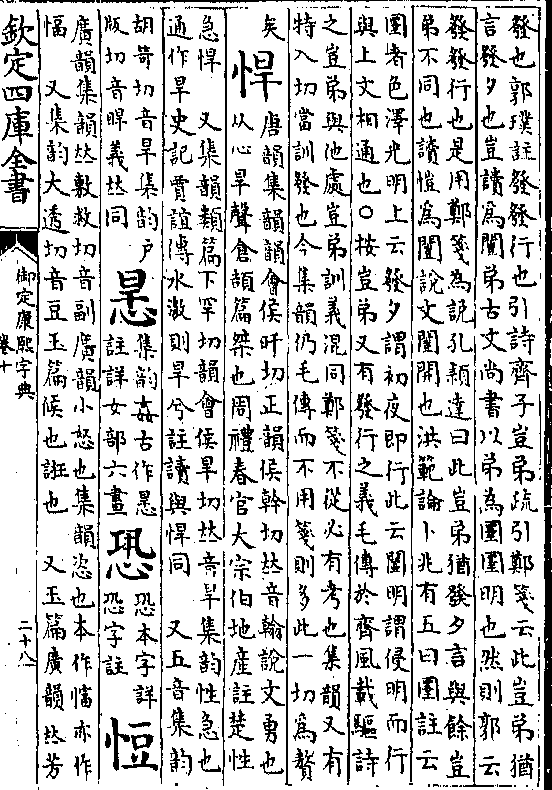 發也郭璞註發發行也引詩齊子豈弟疏引鄭箋云此豈弟猶
言發夕也豈讀爲闓弟古文尚書以弟為圛圛明也然則郭云
發發行也是用鄭箋為說孔穎達曰此豈弟猶發夕言與餘豈
弟不同也讀愷爲闓說文闓開也洪範論卜兆有五曰圛註云
圛者色澤光明上云發夕謂初夜即行此云闓明謂侵明而行
與上文相通也○按豈弟又有發行之義毛傳於齊風載驅詩
之豈弟與他處豈弟訓義混同鄭箋不從必有考也集韻又有
特入切當訓發也今集韻仍毛傳而不用箋則多此一切爲贅
矣
悍
唐韻集韻韻會侯旰切正韻侯幹切𠀤音翰說文勇也
从心旱聲倉頡篇桀也周禮春官大宗伯地産註楚性
急悍 又集韻類篇下罕切韻會侯旱切𠀤音旱集韵性急也
通作旱史記賈誼傳水激則旱兮註讀與悍同 又五音集韵
胡笴切音旱集韵戶
版切音睅義𠀤同
悬
集韵姦古作悬
註詳女部六畫
恐
恐本字詳
恐字註
恒
廣韻集韻𠀤敷救切音副廣韻小怒也集韻恣也本作愊亦作
愊 又集韵大透切音豆玉篇候也誑也 又玉篇廣韻𠀤芳
欽定四庫全書
御定康熙字典
卷十
二十八